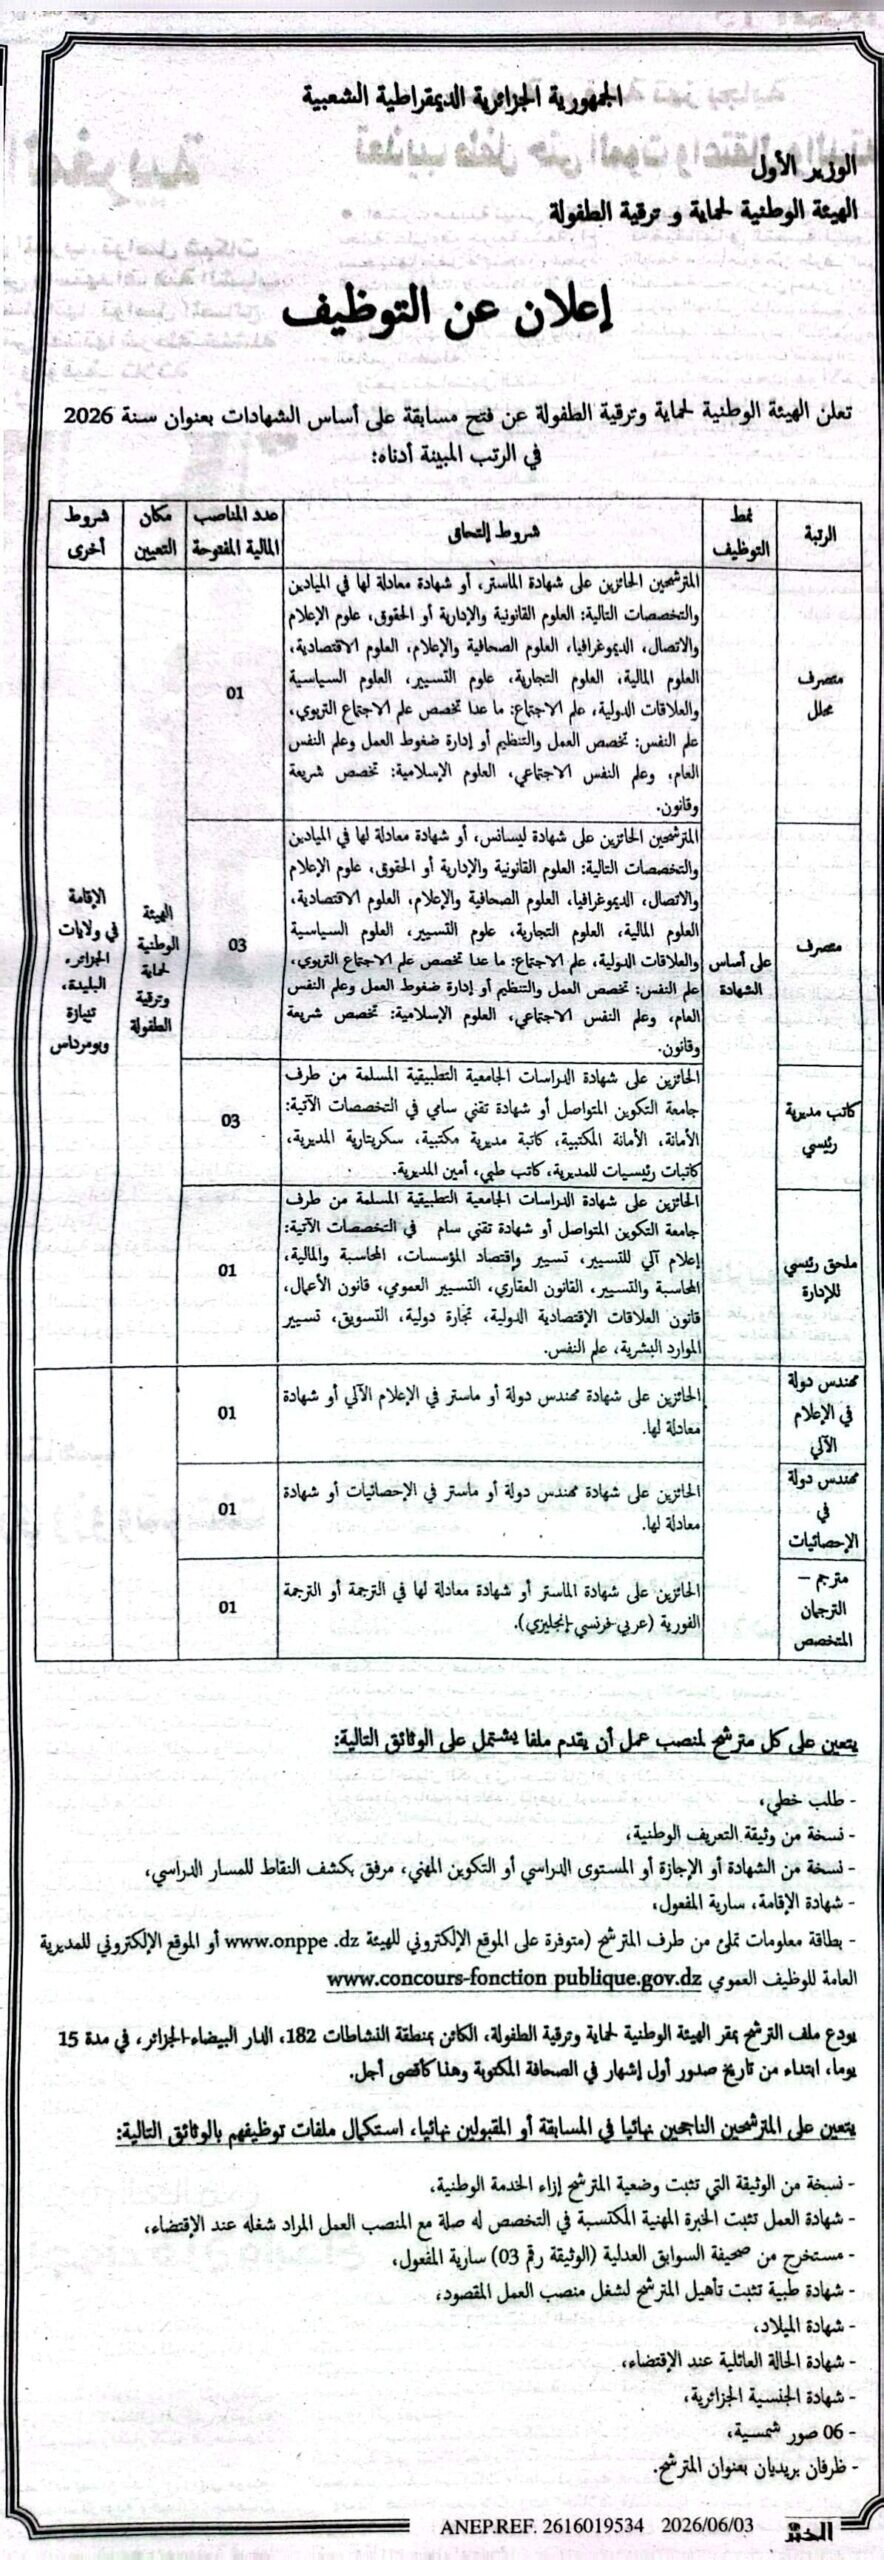 الجمهورية الجزائرية الديمقراطية الشعبية
الوزير الأول
الهيئة الوطنية لحماية و ترقية الطفولة
إعلان عن التوظيف
تعلن الهيئة الوطنية لحماية وترقية الطفولة عن فتح مسابقة على أساس الشهادات بعنوان سنة 2026
في الرتب المبينة أدناه:
الرتبة
نمط
التوظيف
شروط إلتحاق
عدد المناصب
المالية المفتوحة
مكان
التعيين
شروط
أخرى
متصرف
محلل
المترشحين الحائزين على شهادة الماستر، أو شهادة معادلة لها في الميادين
والتخصصات التالية: العلوم القانونية والإدارية أو الحقوق، علوم الإعلام
والاتصال، الديموغرافيا، العلوم الصحافية والإعلام، العلوم الاقتصادية،
العلوم المالية، العلوم التجارية، علوم التسيير، العلوم السياسية
والعلاقات الدولية، علم الاجتماع: ما عدا تخصص علم الاجتماع التربوي،
علم النفس: تخصص العمل والتنظيم أو إدارة ضغوط العمل وعلم النفس
العام، وعلم النفس الاجتماعي، العلوم الإسلامية: تخصص شريعة
وقانون.
01
متصرف
على أساس
الشهادة
المترشحين الحائزين على شهادة ليسانس، أو شهادة معادلة لها في الميادين
والتخصصات التالية: العلوم القانونية والإدارية أو الحقوق، علوم الإعلام
والاتصال، الديموغرافيا، العلوم الصحافية والإعلام، العلوم الاقتصادية،
العلوم المالية، العلوم التجارية، علوم التسيير، العلوم السياسية
والعلاقات الدولية، علم الاجتماع: ما عدا تخصص علم الاجتماع التربوي،
علم النفس: تخصص العمل والتنظيم أو إدارة ضغوط العمل وعلم النفس
العام، وعلم النفس الاجتماعي، العلوم الإسلامية: تخصص شريعة
وقانون.
03
الهيئة
الوطنية
لحماية
وترقية
الطفولة
الإقامة
في ولايات
الجزائر،
البليدة،
تيبازة
وبومرداس
كاتب مديرية
رئيسي
الحائزين على شهادة الدراسات الجامعية التطبيقية المسلمة من طرف
جامعة التكوين المتواصل أو شهادة تقني سامي في التخصصات الآتية:
الأمانة، الأمانة المكتبية، كاتبة مديرية مكتبية، سكريتارية المديرية،
كاتبات رئيسيات للمديرية، كاتب طبي، أمين المديرية.
03
ملحق رئيسي
للإدارة
الحائزين على شهادة الدراسات الجامعية التطبيقية المسلمة من طرف
جامعة التكوين المتواصل أو شهادة تقني سام في التخصصات الآتية:
إعلام آلي للتسيير، تسيير وإقتصاد المؤسسات، المحاسبة والمالية،
المحاسبة والتسيير، القانون العقاري، التسيير العمومي، قانون الأعمال،
قانون العلاقات الإقتصادية الدولية، تجارة دولية، التسويق، تسيير
الموارد البشرية، علم النفس.
01
مهندس دولة
في الإعلام
الآلي
الحائزين على شهادة مهندس دولة أو ماستر في الإعلام الآلي أو شهادة
معادلة لها.
01
مهندس دولة
في
الإحصائيات
الحائزين على شهادة مهندس دولة أو ماستر في الإحصائيات أو شهادة
معادلة لها.
01
مترجم –
الترجمان
المتخصص
الحائزين على شهادة الماستر أو شهادة معادلة لها في الترجمة أو الترجمة
الفورية (عربي-فرنسي-إنجليزي).
01
يتعين على كل مترشح لمنصب عمل أن يقدم ملفا يشتمل على الوثائق التالية:
- طلب خطي،
- نسخة من وثيقة التعريف الوطنية،
- نسخة من الشهادة أو الإجازة أو المستوى الدراسي أو التكوين المهني، مرفق بكشف النقاط للمسار الدراسي،
- شهادة الإقامة، سارية المفعول،
- بطاقة معلومات تملئ من طرف المترشح (متوفرة على الموقع الإلكتروني للهيئة www.onppe .dz أو الموقع الإلكتروني للمديرية
العامة للوظيف العمومي www.concours-fonction publique.gov.dz
يودع ملف الترشح بمقر الهيئة الوطنية لحماية وترقية الطفولة، الكائن بمنطقة النشاطات 182، الدار البيضاء-الجزائر، في مدة 15
يوما، ابتداء من تاريخ صدور أول إشهار في الصحافة المكتوبة وهذا كأقصى أجل.
يتعين على المترشحين الناجحين نهائيا في المسابقة أو المقبولين نهائيا، استكمال ملفات توظيفهم بالوثائق التالية:
- نسخة من الوثيقة التي تثبت وضعية المترشح إزاء الخدمة الوطنية،
- شهادة العمل تثبت الخبرة المهنية المكتسبة في التخصص له صلة مع المنصب العمل المراد شغله عند الإقتضاء،
- مستخرج من صحيفة السوابق العدلية (الوثيقة رقم 03) سارية المفعول،
- شهادة طبية تثبت تأهيل المترشح لشغل منصب العمل المقصود،
- شهادة الميلاد،
- شهادة الحالة العائلية عند الإقتضاء،
- شهادة الجنسية الجزائرية،
- 06 صور شمسية،
- ظرفان بريديان بعنوان المترشح.
الخبر 2026/06/03 ANEP.REF. 2616019534